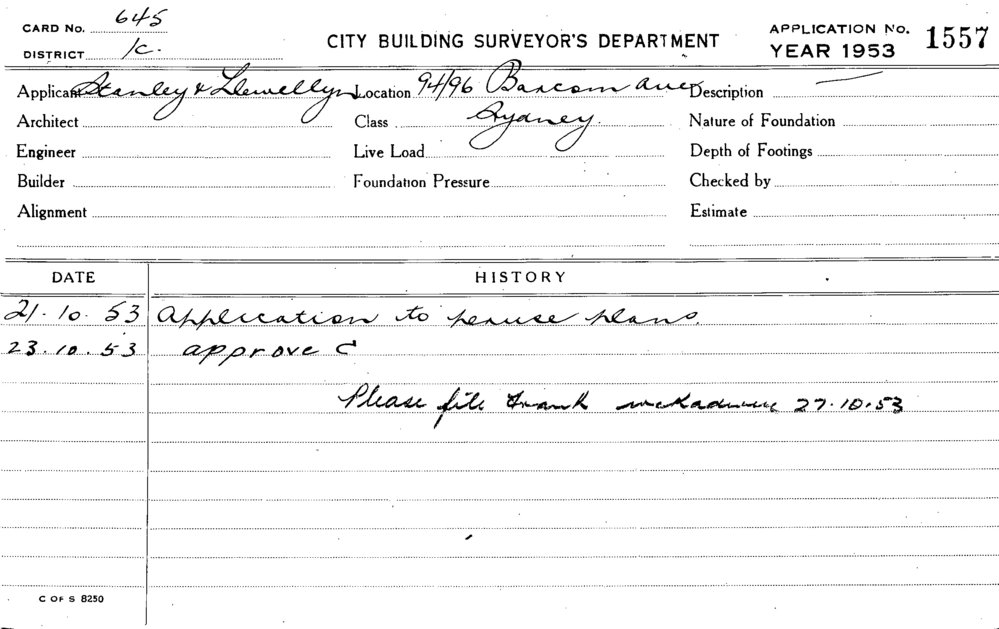 CARD No. 645
DISTRICT 1c.
CITY BUILDING SURVEYOR'S DEPARTMENT
APPLICATION No. 1557
YEAR 1953
Applicant Stanley & Llewellyn Location 94/96 Barcom Ave Description —
Architect Class Sydney. Nature of Foundation
Engineer Live Load Depth of Footings
Builder Foundation Pressure Checked by
Alignment Estimate
DATE HISTORY
21.10.53 Application to peruse plans.
23.10.53 approve C
Please file Frank 27.10.53
C OF S 8250